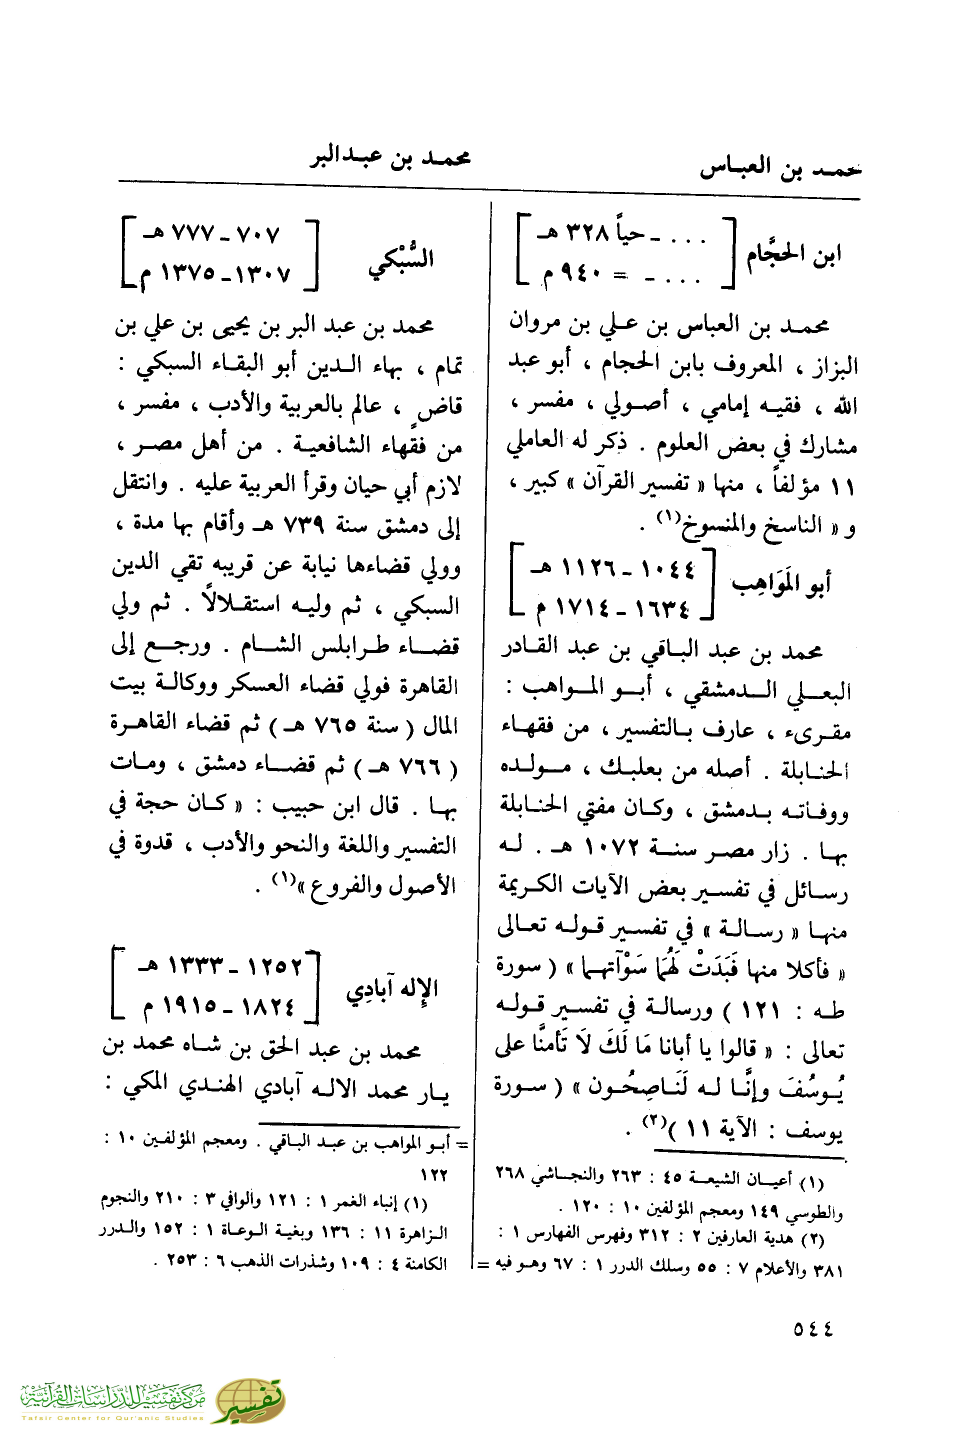 حمد بن العباس
محمد بن عبدالبر
ابن الحجَّام
. . . ـ حياً ٣٢٨ هـ
. . . ـ = ٩٤٠ م
محمد بن العباس بن علي بن مروان
البزاز ، المعروف بابن الحجام ، أبو عبد
الله ، فقيه إمامي ، أصولي ، مفسر ،
مشارك في بعض العلوم . ذكر له العاملي
١١ مؤلفاً ، منها « تفسير القرآن » كبير ،
و « الناسخ والمنسوخ(١) .
أبو المَوَاهِب
١٠٤٤ ـ ١١٢٦ هـ
١٦٣٤ ـ ١٧١٤ م
محمد بن عبد الباقي بن عبد القادر
البعلي الدمشقي ، أبو المواهب :
مقرىء ، عارف بالتفسير ، من فقهاء
الحنابلة . أصله من بعلبك ، مولده
ووفاته بدمشق ، وكان مفتي الحنابلة
بها . زار مصر سنة ١٠٧٢ هـ . له
رسائل في تفسير بعض الآيات الكريمة
منها « رسالة » في تفسير قوله تعالى
« فأكلا منها فَبَدَتْ لَهُمَا سَوْآتهما » ( سورة
طه : ١٢١ ) ورسالة في تفسير قوله
تعالى : « قالوا يا أبانا مَا لَكَ لَا تَأمنَّا على
يُوسُفَ وإنَّا له لَنَاصِحُون » ( سورة
يوسف : الآية ١١ )(٢) .
(١) أعيان الشيعة ٤٥ : ٢٦٣ والنجاشي ٢٦٨
والطوسي ١٤٩ ومعجم المؤلفين ١٠ : ١٢٠ .
(٢) هدية العارفين ٢ : ٣١٢ وفهرس الفهارس ١ :
٣٨١ والأعلام ٧ : ٥٥ وسلك الدرر ١ : ٦٧ وهو فيه =
السُّبْكي
٧٠٧ ـ ٧٧٧ هـ
١٣٠٧ ـ ١٣٧٥ م
محمد بن عبد البر بن يحيى بن علي بن
تمام ، بهاء الدين أبو البقاء السبكي :
قاضٍ ، عالم بالعربية والأدب ، مفسر ،
من فقهاء الشافعية . من أهل مصر ،
لازم أبي حيان وقرأ العربية عليه . وانتقل
إلى دمشق سنة ٧٣٩ هـ وأقام بها مدة ،
وولي قضاءها نيابة عن قريبه تقي الدين
السبكي ، ثم وليه استقلالاً . ثم ولي
قضاء طرابلس الشام . ورجع إلى
القاهرة فولي قضاء العسكر ووكالة بيت
المال ( سنة ٧٦٥ هـ ) ثم قضاء القاهرة
( ٧٦٦ هـ ) ثم قضاء دمشق ، ومات
بها . قال ابن حبيب : « كان حجة في
التفسير واللغة والنحو والأدب ، قدوة في
الأصول والفروع »(١) .
الإله آبادِي
١٢٥٢ ـ ١٣٣٣ هـ
١٨٢٤ ـ ١٩١٥ م
محمد بن عبد الحق بن شاه محمد بن
يار محمد الاله آبادي الهندي المكي :
= أبو المواهب بن عبد الباقي . ومعجم المؤلفين ١٠ :
١٢٢
(١) إنباء الغمر ١ : ١٢١ والوافي ٣ : ٢١٠ والنجوم
الزاهرة ١١ : ١٣٦ وبغية الوعاة ١ : ١٥٢ والدرر
الكامنة ٤ : ١٠٩ وشذرات الذهب ٦ : ٢٥٣ .
٥٤٤
مركز تفسير للدراسات القرآنية
Tafsir Center for Qur'anic Studies
تفسير